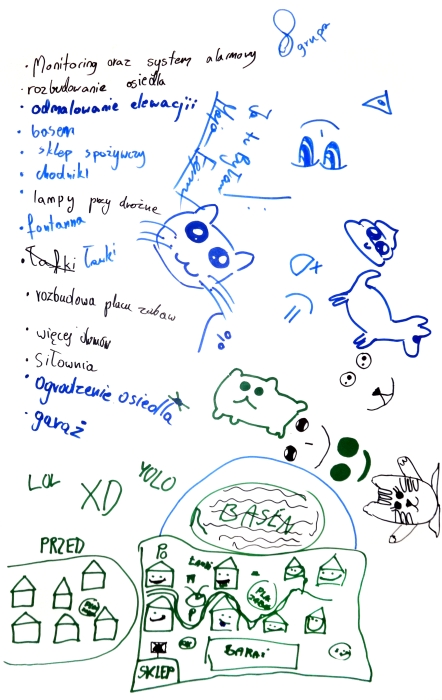 8 grupa
• Monitoring oraz system alarmowy
• rozbudowanie osiedla
• odmalowanie elewacji
• basen
• sklep spożywczy
• chodniki
• lampy przy drożne
• fontanna
• Ławki
• rozbudowa placu zabaw
• więcej domów
• Siłownia
• Ogrodzenie osiedla
• garaż
Tu byłam
LOL
XD
YOLO
BASEN
PRZED
PO
P
SKLEP